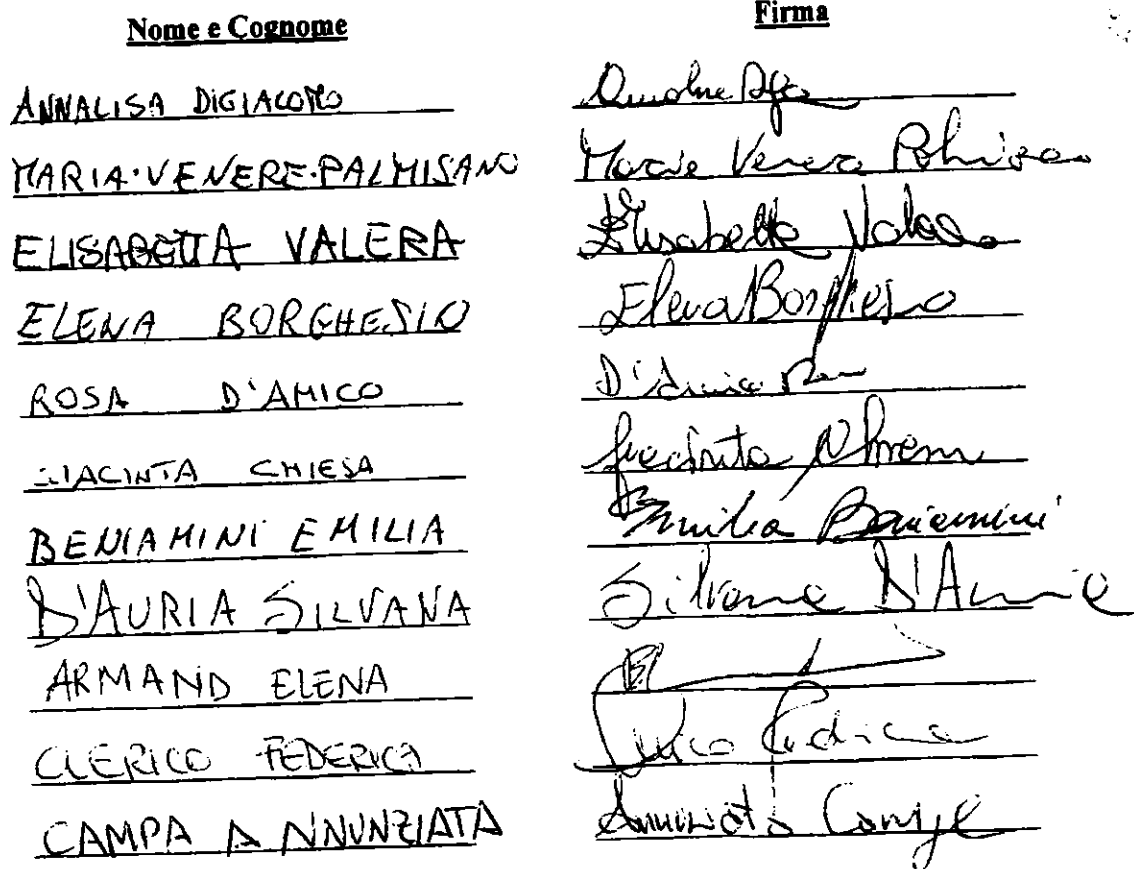 Nome e Cognome Firma
ANNALISA DIGIACOMO
MARIA·VENERE·PALMISANO Maria Venera
ELISABETTA VALERA Elisabetta
ELENA BORGHESIO Elena Borghesio
ROSA D'AMICO D'Amico
GIACINTA CHIESA
BENIAMINI EMILIA Emilia Beniamini
D'AURIA SILVANA Silvana D'Auria
ARMAND ELENA
CLERICO FEDERICA
CAMPA ANNUNZIATA Annunziata Campa